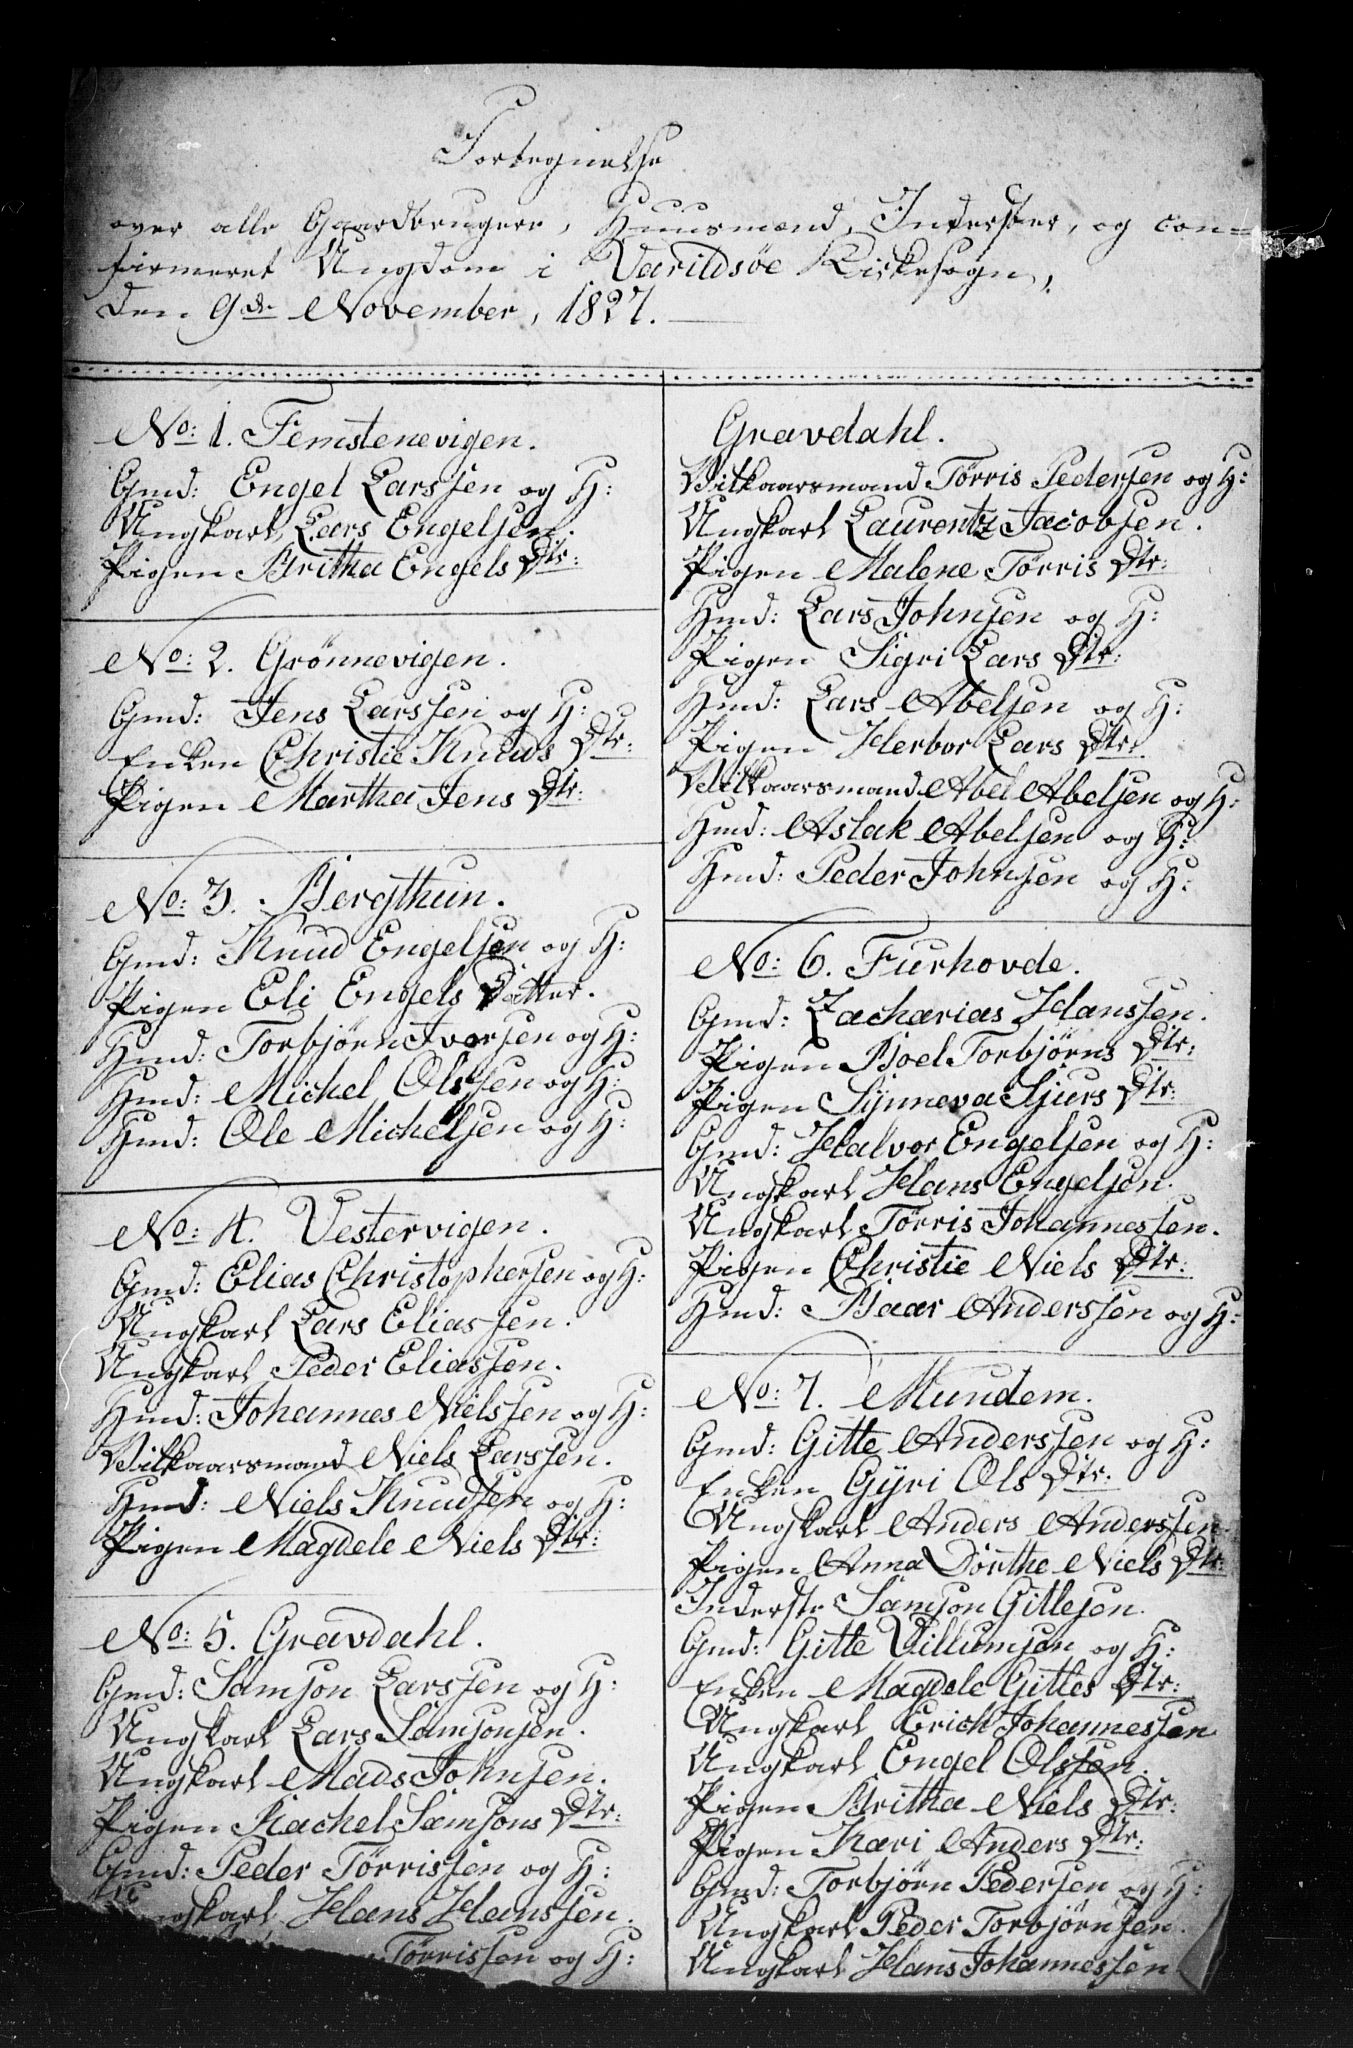 Fortegnelse
over alle Gaardbrugere, Huusmænd, Inderster, og con=
firmeret Ungdom i Varildsøe Kirkesogn,
den 9de November, 1827.
No: 1. Femstenevigen.
Gmd: Engel Larssen og H:
Ungkarl Lars Engelsen.
Pigen Britha Engels Dtr:
No: 2. Grønnevigen.
Gmd: Jens Larssen og H:
Enken Christie Knuds Dtr:
Pigen Martha Jens Dtr:
No: 3. Bergthun.
Gmd: Knud Engelsen og H:
Pigen Eli Engels Datter.
Hmd: Torbjørn Iversen og H:
Hmd: Michel Olssen og H:
Hmd: Ole Michelsen og H:
No: 4. Vestervigen.
Gmd: Elias Christophersen og H:
Ungkarl Lars Eliassen.
Ungkarl Peder Eliassen.
Hmd: Johannes Nielssen og H:
Vilkaarsmand Niels Larssen.
Hmd: Niels Knudsen og H:
Pigen Magdele Niels Dtr:
No: 5. Gravdahl.
Gmd: Samson Larssen og H:
Ungkarl Lars Samsonsen.
Ungkarl Mads Johnsen.
Pigen Rachel Samsons Dtr:
Gmd: Peder Tørrissen og H:
Ungkarl Hans Hanssen.
Tørrissen og H:
Gravdahl.
Vilkaarsmand Tørris Pedersen og H:
Ungkarl Laurentz Jacobsen.
Pigen Malene Tørris Dtr:
Hmd: Lars Johnsen og H:
Pigen Sigri Lars Dtr:
Hmd: Lars Abelsen og H:
Pigen Herbor Lars Dtr:
Vilkaarsmand Abel Abelsen og H:
Hmd: Aslak Abelsen og H:
Hmd: Peder Johnsen og H:
No: 6. Furhovde.
Gmd: Zacharias Hanssen.
Pigen Boel Torbjørns Dtr:
Pigen Synneva Sjurs Dtr:
Gmd: Halvor Engelsen og H:
Ungkarl Hans Engelsen.
Ungkarl Tørris Johannessen.
Pigen Christie Niels Dtr:
Hmd: Baar Anderssen og H:
No: 7. Mundem.
Gmd: Gitte Anderssen og H:
Enken Gyri Ols Dtr:
Ungkarl Anders Anderssen.
Pigen Anna Dorthe Niels Dtr:
Inderste Samson Gittesen.
Gmd: Gitte Villumsen og H:
Enken Magdele Gittes Dtr:
Ungkarl Erich Johannessen
Ungkarl Engel Olssen.
Pigen Britha Niels Dtr:
Pigen Kari Anders Dtr:
Gmd: Torbjørn Pedersen og H:
Ungkarl Peder Torbjørnsen.
Ungkarl Hans Johannessen